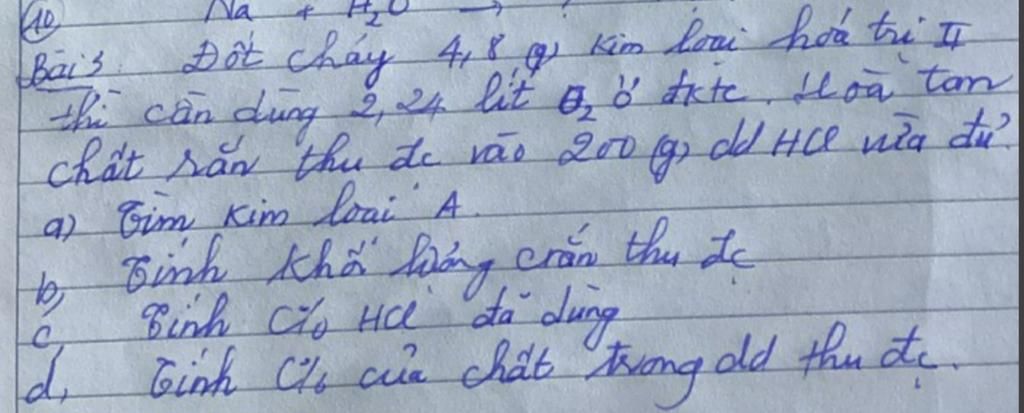 10
Na + H2O →
Bài 3. Đốt cháy 4,8 (g) kim loại hoá trị II
thì cần dùng 2,24 lít O2 ở đktc. Hoà tan
chất rắn thu đc vào 200 (g) dd HCl vừa đủ.
a) Tìm kim loại A.
b, Tính khối lượng crắn thu đc
c, Tính C% HCl đã dùng
d, Tính C% của chất trong dd thu đc.